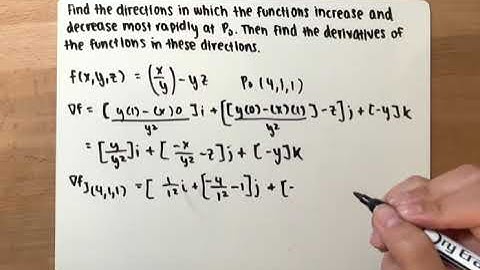 Find the directions in which the functions increase and
decrease most rapidly at P₀. Then find the derivatives of
the functions in these directions.
f(x,y,z) = (x/y) - yz P₀ (4,1,1)
∇f = [y(1)-(x)0 / y²]i + [[y(0)-(x)(1) / y²]-z]j + [-y]k
= [y/y²]i + [-x/y² - z]j + [-y]k
∇f](4,1,1) = [1/1² i + [-4/1² - 1]j + [-
Dry Era